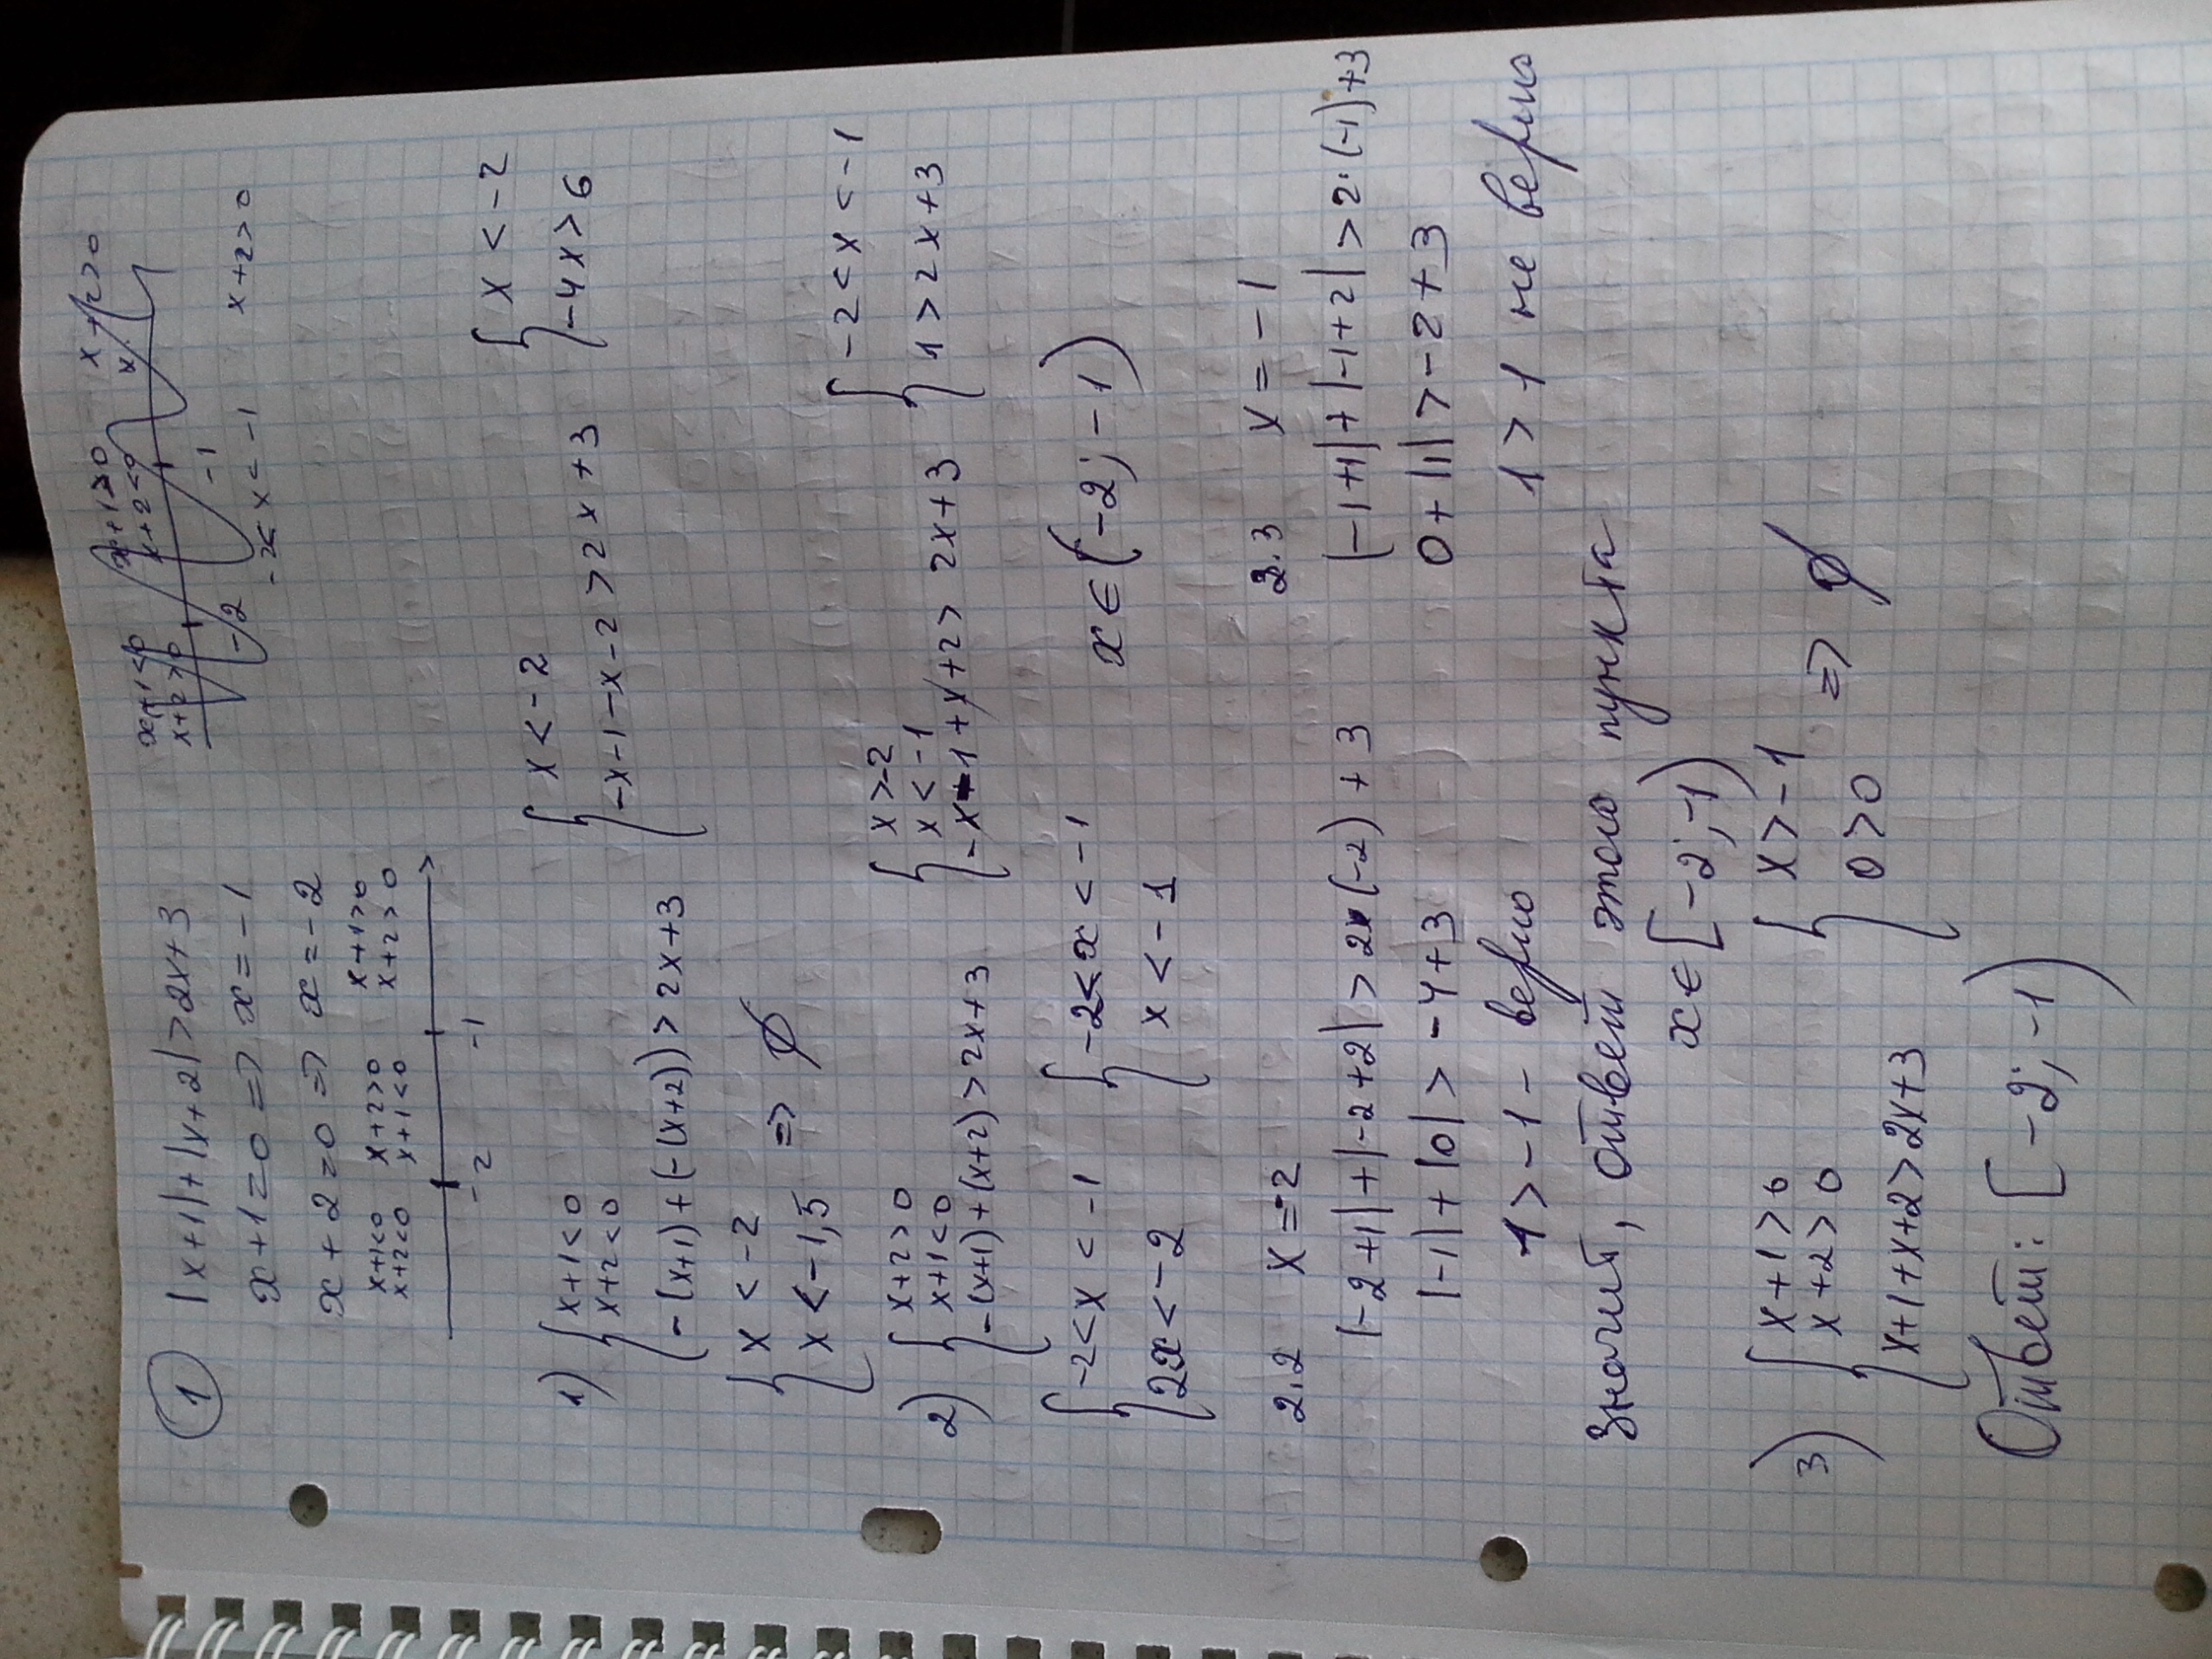 ① |x+1|+|x+2|>2x+3
x+1=0 => x=-1
x+2=0 => x=-2
x+1<0 x+2>0 x+1>0
x+2<0 x+1<0 x+2>0
-2 -1
x+1<0 x+1≥0 x+2>0
x+2>0 x+2<0
-2 -1
-2< x<-1 x+2>0
1) { x+1<0
x+2<0
-(x+1)+(-(x+2))>2x+3
{ x<-2
-x-1-x-2>2x+3
{ x<-2
-4x>6
{ x<-2
x<-1,5 => ∅
2) { x+2>0
x+1<0
-(x+1)+(x+2)>2x+3
{ x>-2
x<-1
-x-1+x+2>2x+3
{ -2<x<-1
1>2x+3
{ -2<x<-1
2x<-2
{ -2<x<-1
x<-1
x∈(-2;-1)
2.2 x=-2
|-2+1|+|-2+2|>2·(-2)+3
|-1|+|0|>-4+3
1>-1 - верно
2.3 x=-1
|-1+1|+|-1+2|>2·(-1)+3
0+|1|>-2+3
1>1 не верно
Значит, ответ этого пункта
x∈[-2;-1)
3) { x+1>0
x+2>0
x+1+x+2>2x+3
{ x>-1
0>0 => ∅
Ответ: [-2;-1)